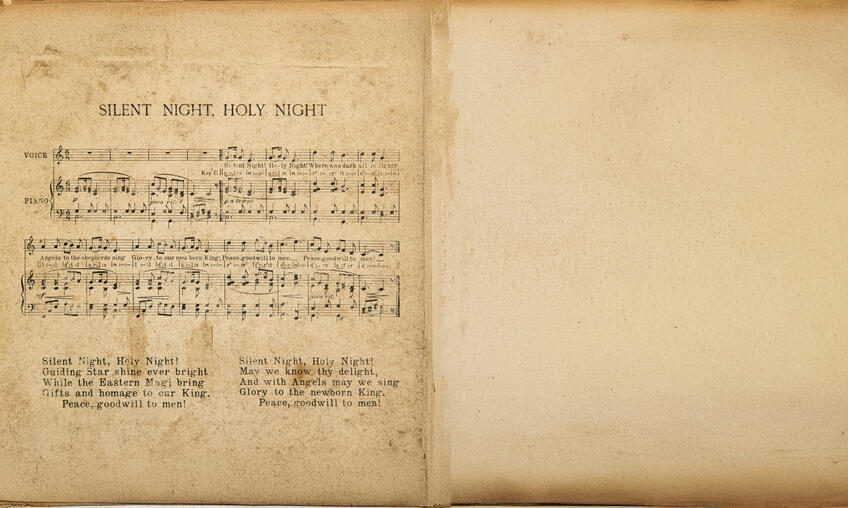 SILENT NIGHT, HOLY NIGHT
VOICE
Silent Night! Ho-ly Night! Where was dark all is light?
Key C
PIANO
p
poco rit.
p a tempo
Angels to the shepherds sing Glo-ry to our new born King; Peace, goodwill to men Peace, goodwill to men!
mf
poco rit.
Silent Night, Holy Night!
Guiding Star shine ever bright
While the Eastern Magi bring
Gifts and homage to our King.
Peace, goodwill to men!
Silent Night, Holy Night!
May we know thy delight,
And with Angels may we sing
Glory to the newborn King.
Peace, goodwill to men!